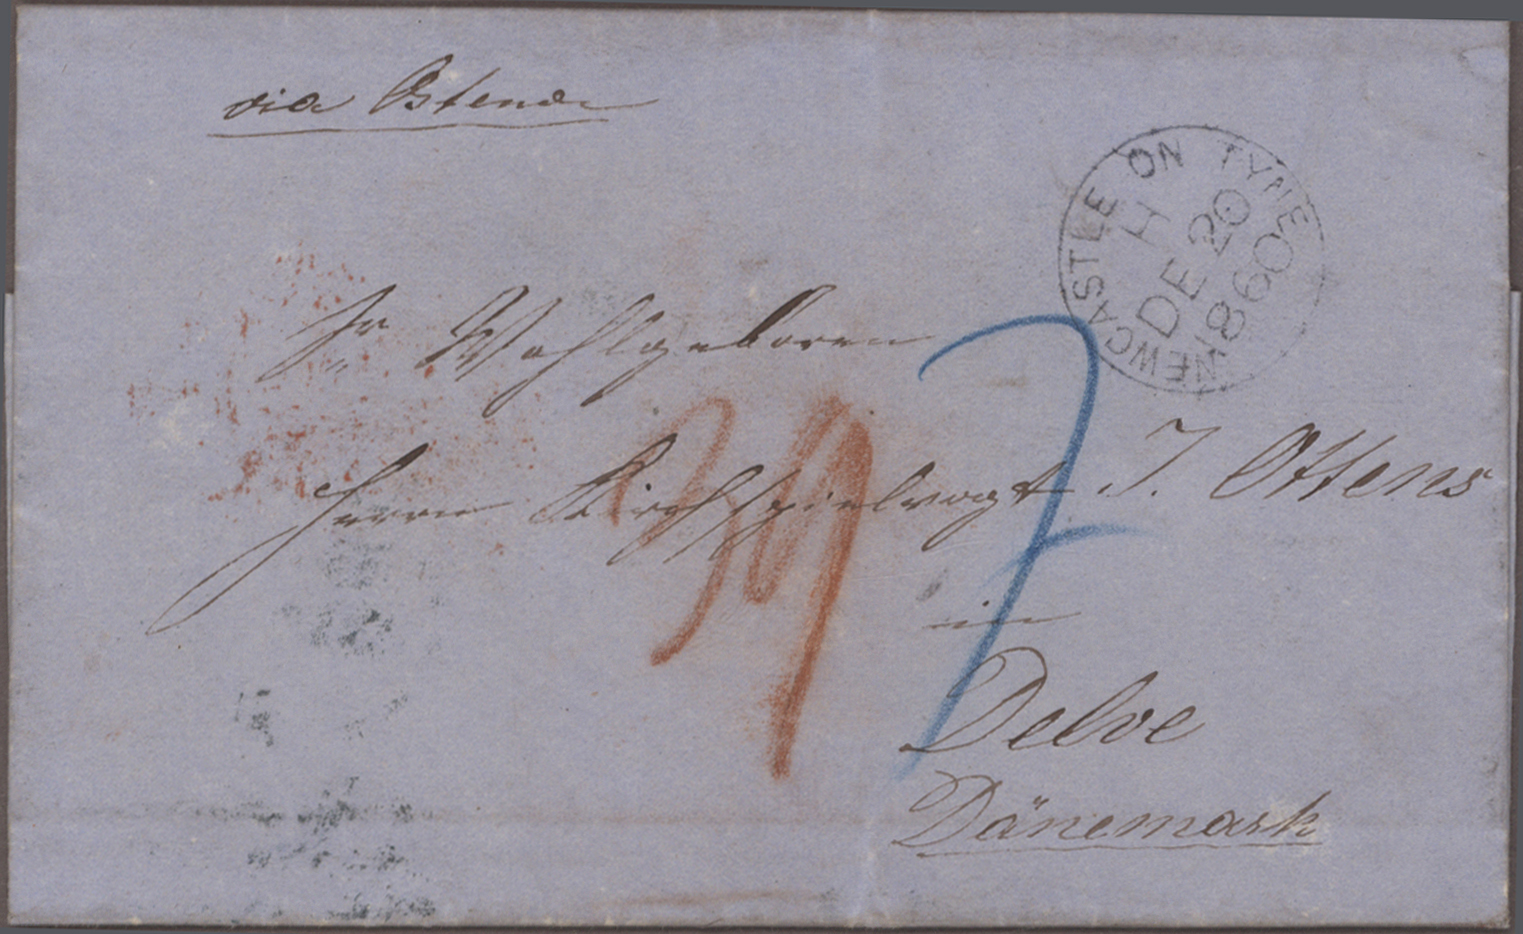 via Ostende
NEWCASTLE ON TYNE
H
DE 20
1860
Sr Wohlgeboren
39
7
Herrn Kirchspielvogt J. Ottens
in
Delve
Dänemark